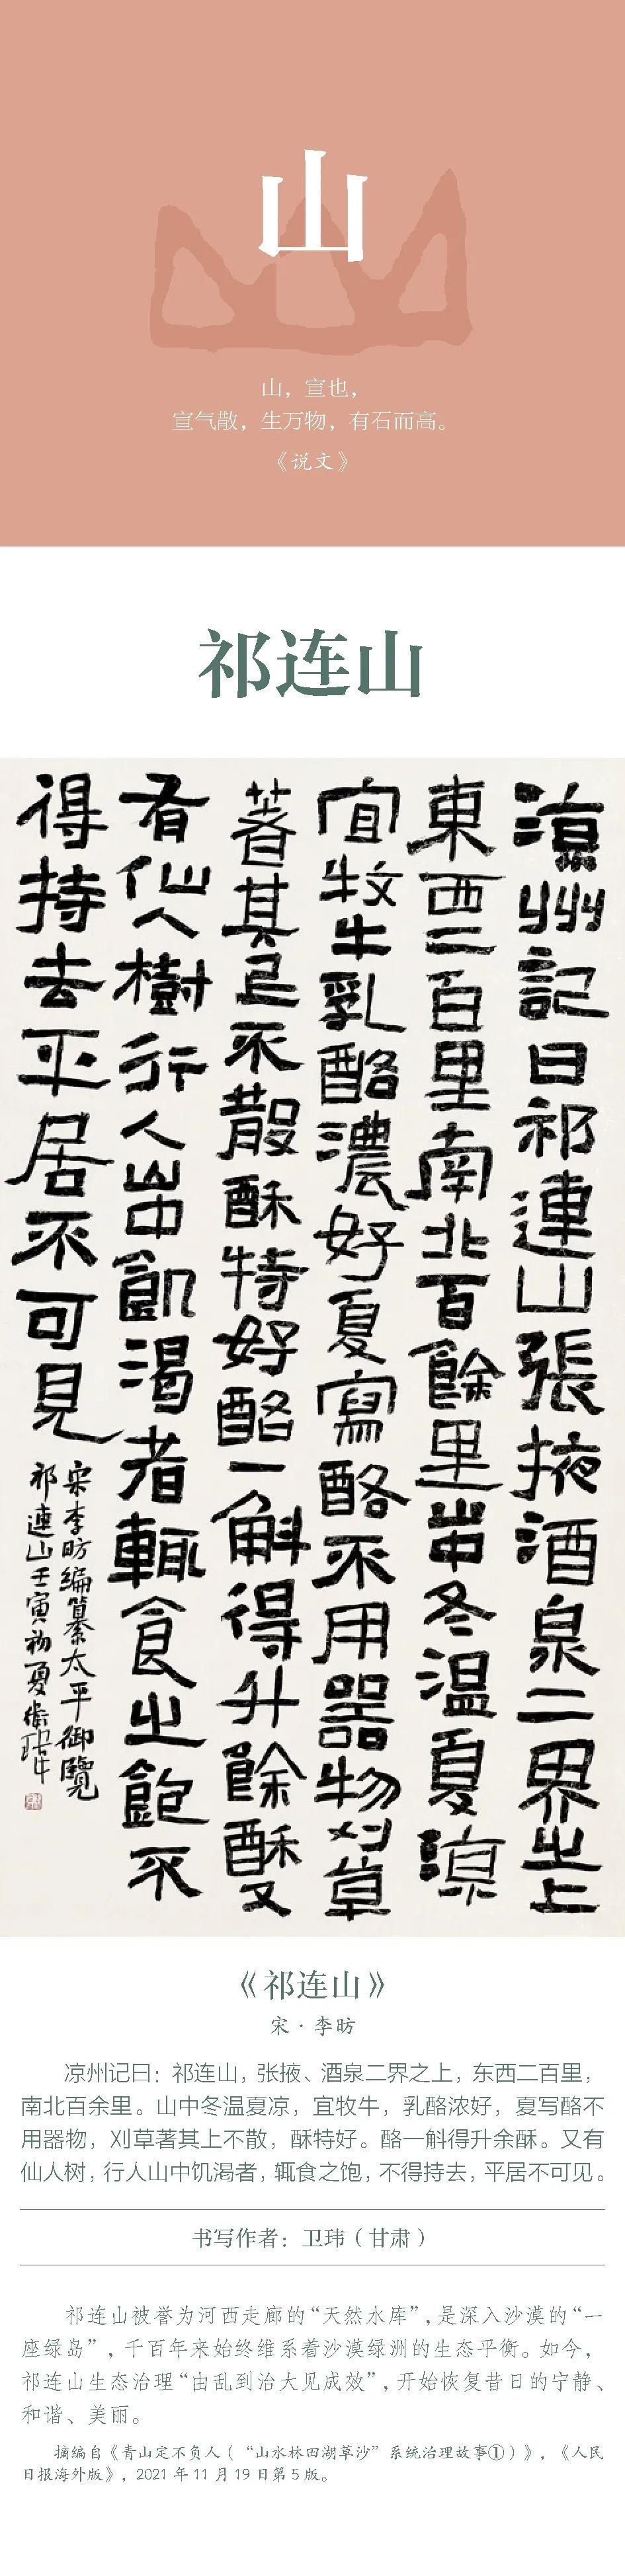 山
山，宣也，
宣气散，生万物，有石而高。
《说文》
祁连山
涼州記曰祁連山張掖酒泉二界之上
東西二百里南北百餘里山中冬温夏涼
宜牧牛乳酪濃好夏寫酪不用器物刈草
著其上不散酥特好酪一斛得升餘酥又
有仙人樹行人山中飢渴者輒食之飽不
得持去平居不可見
宋李昉編纂太平御覽
祁連山壬寅初夏衛玮
《祁连山》
宋·李昉
凉州记曰：祁连山，张掖、酒泉二界之上，东西二百里，
南北百余里。山中冬温夏凉，宜牧牛，乳酪浓好，夏写酪不
用器物，刈草著其上不散，酥特好。酪一斛得升余酥。又有
仙人树，行人山中饥渴者，辄食之饱，不得持去，平居不可见。
书写作者：卫玮（甘肃）
祁连山被誉为河西走廊的“天然水库”，是深入沙漠的“一
座绿岛”，千百年来始终维系着沙漠绿洲的生态平衡。如今，
祁连山生态治理“由乱到治大见成效”，开始恢复昔日的宁静、
和谐、美丽。
摘编自《青山定不负人（“山水林田湖草沙”系统治理故事①）》，《人民
日报海外版》，2021年11月19日第5版。